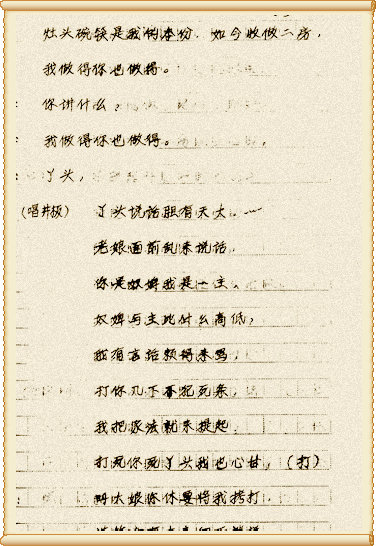 灶头碗筷是我的本份．如今收做二房，
我做得你也做得。
你讲什么。
我做得你也做得。
丫头，
（唱井板） 丫头说话胆有天大。
老娘面前乱来说话，
你是奴婢我是一主、
奴婢与主比什么高低，
我有言语
打你几下不犯死条，
我把家法就来提起，
打死你死丫头我也心甘，（打）
娘你要将我拷打，